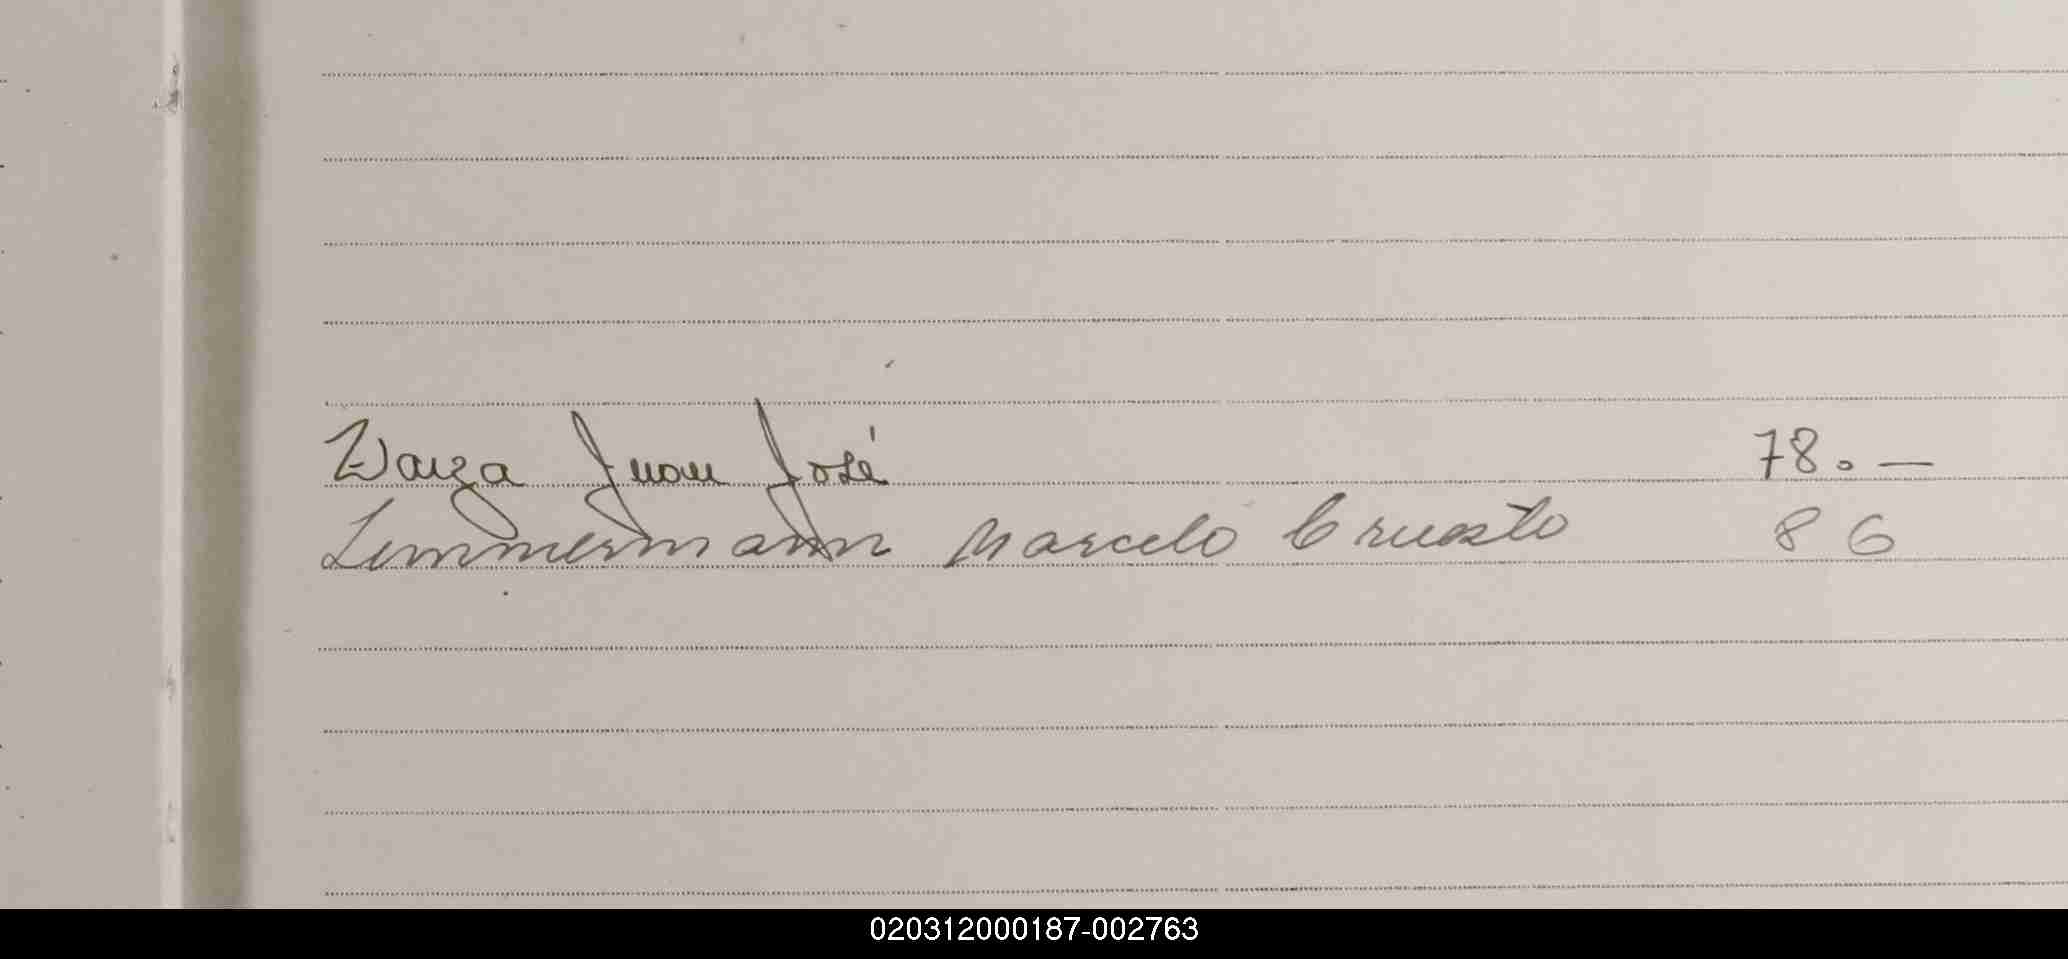 Zarza Juan José 78.—
Zimmermann Marcelo Ernesto 86
020312000187-002763